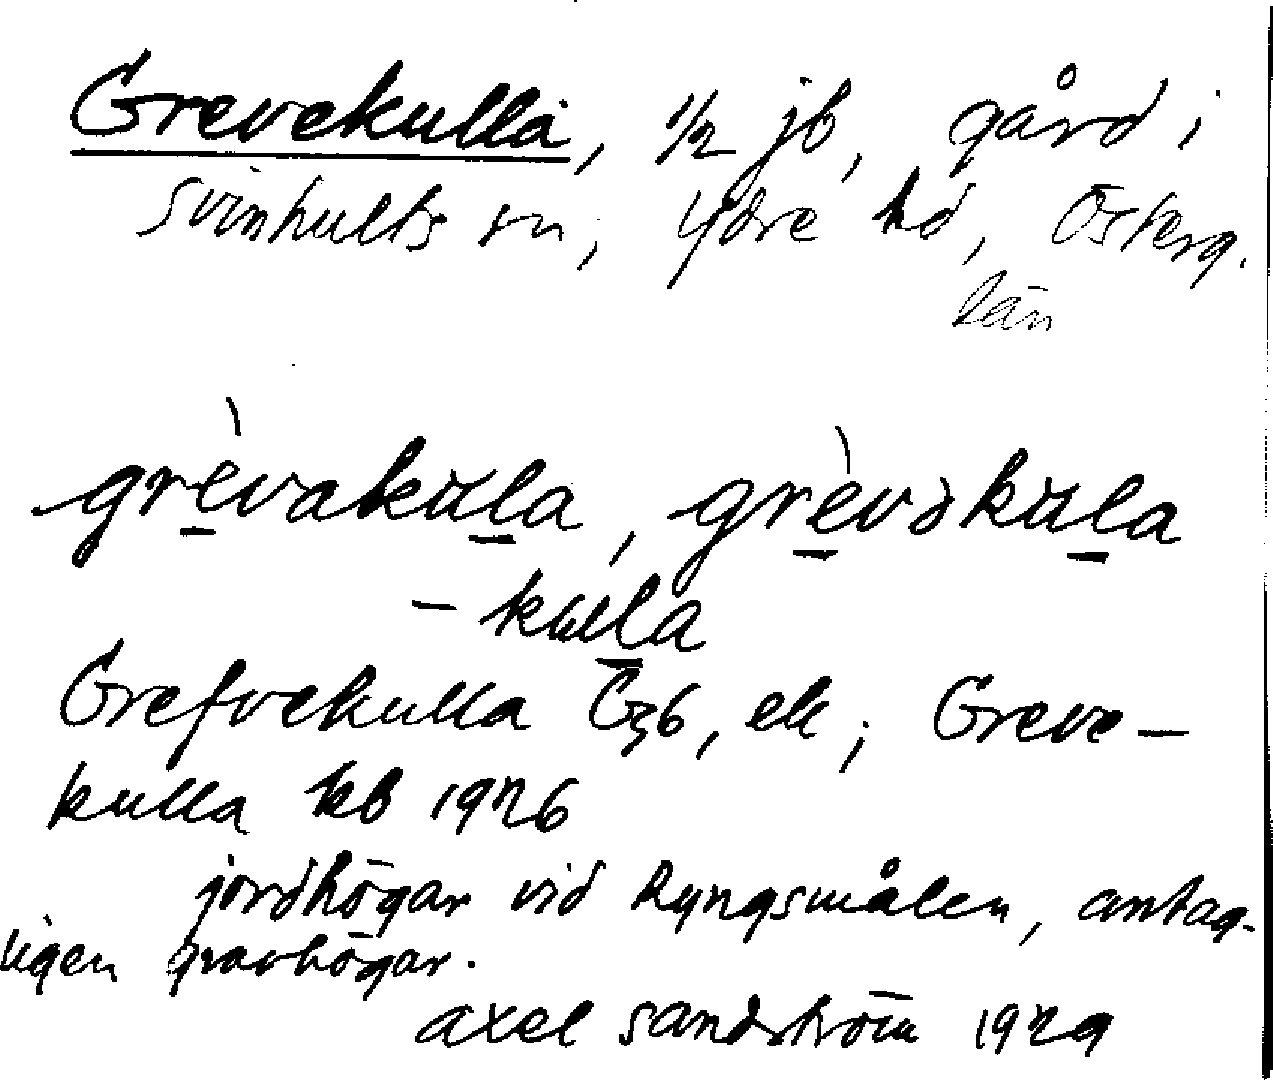 Grevekulla, 1/2 jb, gård i
Svinhults sn, Ydre hd, Österg.
län
grèvakùla, grèvəkùla
- kulla
Grefvekulla Gzb, ek; Greve-
kulla kb 1926
jordhögar vid Lyngsmålen, antag-
ligen gravhögar.
axel sandström 1929